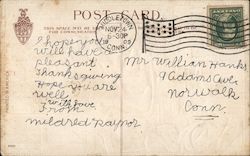 POST CARD
THIS SPACE MAY BE
FOR COMMUNICATION
MIDDLETOWN
NOV 24
6-30P
09
CONN.
I hope you
will have a
pleasant
Thanksgiving
Hope you are
well
with love
From
mildred Raynor
Mr William Hanks
9 Adams Ave.
Norwalk
Conn